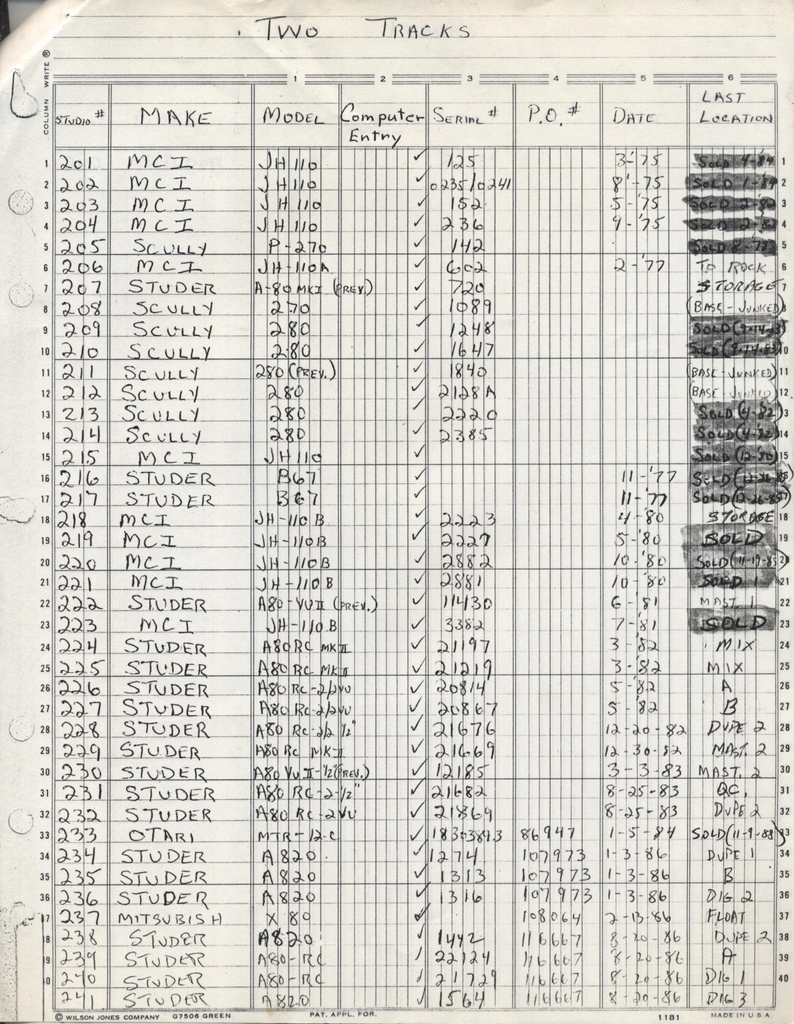 TWO TRACKS
COLUMN WRITE ®
1 2 3 4 5 6
STUDIO # MAKE MODEL Computer Entry SERIAL # P.O. # DATE LAST LOCATION
1 201 MCI JH 110 ✓ 125 3-'75 SOLD 4-84 1
2 202 MCI JH 110 ✓ 0235/0241 8'-75 SOLD 1-84 2
3 203 MCI JH 110 ✓ 152 5-'75 SOLD 2-82 3
4 204 MCI JH 110 ✓ 236 9-'75 SOLD 2-82 4
5 205 SCULLY P-270 ✓ 142 SOLD 5
6 206 MCI JH-110A ✓ 602 2-'77 TO ROCK 6
7 207 STUDER A-80 MKI (PREV.) ✓ 720 STORAGE 7
8 208 SCULLY 270 ✓ 1089 (BASE-JUNKED) 8
9 209 SCULLY 280 ✓ 1248 SOLD 9
10 210 SCULLY 280 ✓ 1647 SOLD 10
11 211 SCULLY 280 (PREV.) ✓ 1840 (BASE-JUNKED) 11
12 212 SCULLY 280 ✓ 2128A (BASE JUNKED) 12
13 213 SCULLY 280 ✓ 2220 SOLD (4-82) 13
14 214 SCULLY 280 ✓ 2385 SOLD (4-82) 14
15 215 MCI JH110 ✓ SOLD (12-80) 15
16 216 STUDER B67 ✓ 11-'77 SOLD 16
17 217 STUDER B67 ✓ 11-'77 SOLD 17
18 218 MCI JH-110B ✓ 2223 4-'80 STORAGE 18
19 219 MCI JH-110B ✓ 2227 5-'80 SOLD 19
20 220 MCI JH-110B ✓ 2882 10-'80 SOLD (11-19-85) 20
21 221 MCI JH-110B ✓ 2881 10-'80 SOLD 21
22 222 STUDER A80-VUII (PREV.) ✓ 11430 6-'81 MAST 1 22
23 223 MCI JH-110B ✓ 3382 7-'81 SOLD 23
24 224 STUDER A80 RC MKII ✓ 21197 3-'82 MIX 24
25 225 STUDER A80 RC MKII ✓ 21219 3-'82 MIX 25
26 226 STUDER A80 RC-2/2VU ✓ 20814 5-'82 A 26
27 227 STUDER A80 RC-2/2VU ✓ 20867 5-'82 B 27
28 228 STUDER A80 RC-2/2 ½" ✓ 21676 12-20-82 DUPE 2 28
29 229 STUDER A80 RC MK-II ✓ 21669 12-30-82 MAST. 2 29
30 230 STUDER A80 VU II-½"(PREV.) ✓ 12185 3-3-83 MAST. 2 30
31 231 STUDER A80 RC-2-½" ✓ 21682 8-25-83 QC, 31
32 232 STUDER A80 RC-2VU ✓ 21869 8-25-83 DUPE 2 32
33 233 OTARI MTR-12-C ✓ 18303893 86947 1-5-84 SOLD (11-9-88) 33
34 234 STUDER A820 ✓ 1274 107973 1-3-86 DUPE 1 34
35 235 STUDER A820 ✓ 1313 107973 1-3-86 B 35
36 236 STUDER A820 ✓ 1316 107973 1-3-86 DIG 2 36
37 237 MITSUBISH X 80 ✓ 108064 2-13-86 FLOAT 37
38 238 STUDER A820 ✓ 1442 116667 8-20-86 DUPE 2 38
39 239 STUDER A80-RC ✓ 22124 116667 8-20-86 A 39
40 240 STUDER A80-RC ✓ 21729 116667 8-20-86 DIG 1 40
241 STUDER A820 ✓ 1564 116667 8-20-86 DIG 3
© WILSON JONES COMPANY G7506 GREEN PAT. APPL. FOR. 1181 MADE IN U.S.A.